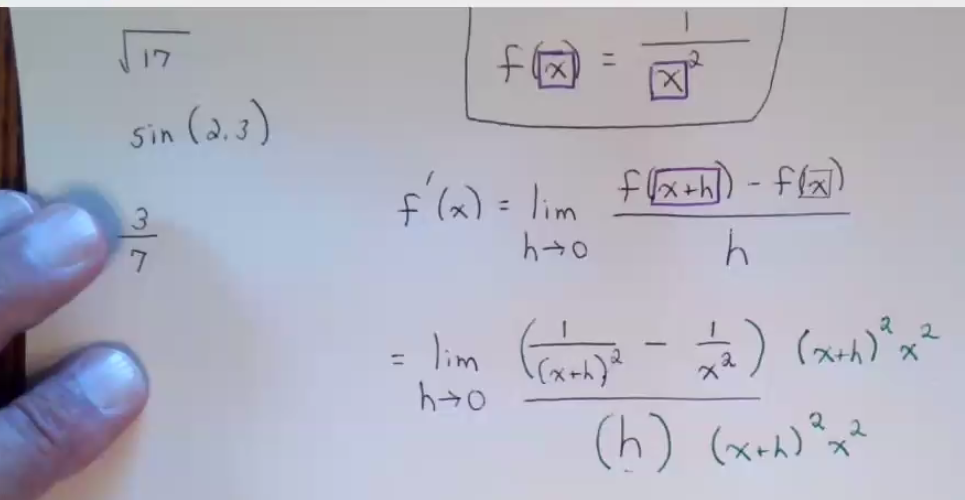 √17
sin (2.3)
3/7
f(x) = 1/x²
f'(x) = lim h→0 (f(x+h) - f(x))/h
= lim h→0 (1/(x+h)² - 1/x²) (x+h)² x² / (h) (x+h)² x²